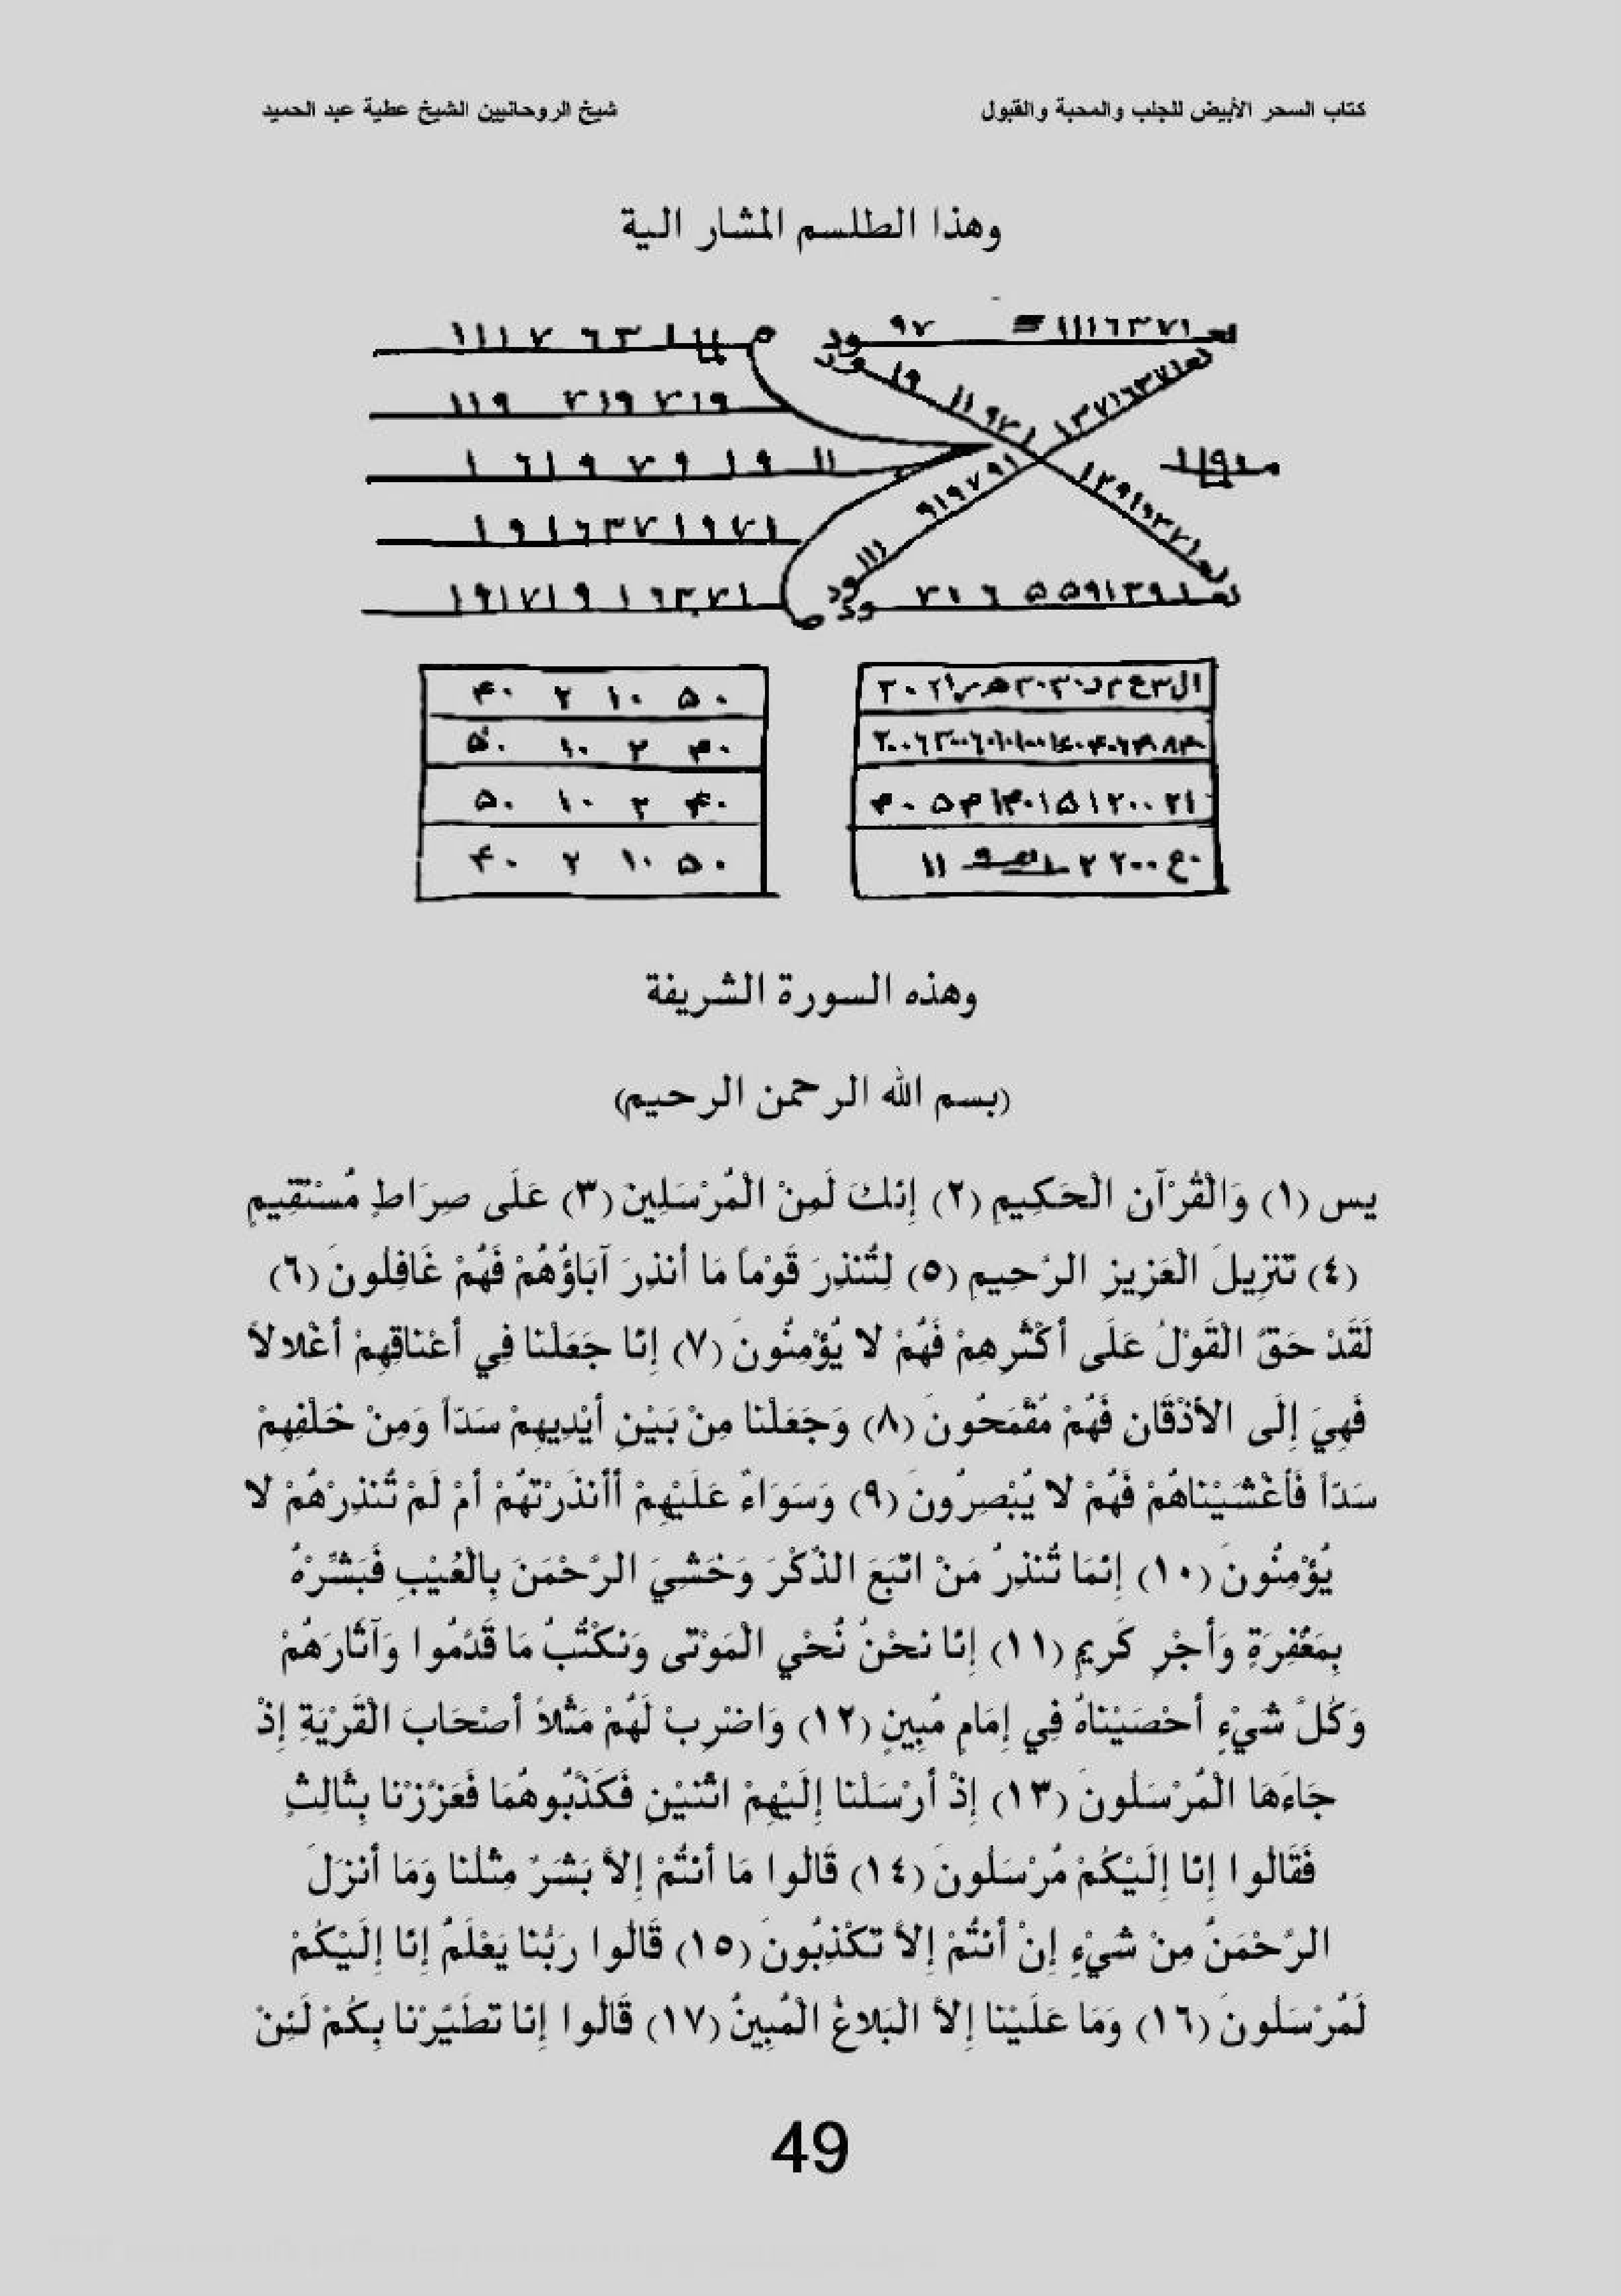 كتاب السحر الأبيض للجلب والمحبة والقبول
شيخ الروحانيين الشيخ عطية عبد الحميد
وهذا الطلسم المشار الية
٩٧
١١١٦٣٧١
١١١ ٧ ٦٣
١١٩ ٧١٩ ٧١٩
١ ٦١٩ ٧ ٩ ١٩ ١١
١٩١٦٣٧١٩٧١
١٩١٧١٩١٦٣٧١
٤٠ ٢ ١٠ ٥٠
٥٠ ١٠ ٢ ٤٠
٥٠ ١٠ ٢ ٤٠
٤٠ ٢ ١٠ ٥٠
وهذه السورة الشريفة
(بسم الله الرحمن الرحيم)
يس (١) وَالْقُرْآنِ الْحَكِيمِ (٢) إِنَّكَ لَمِنْ الْمُرْسَلِينَ (٣) عَلَى صِرَاطٍ مُسْتَقِيمٍ
(٤) تَنزِيلَ الْعَزِيزِ الرَّحِيمِ (٥) لِتُنْذِرَ قَوْماً مَا أُنذِرَ آبَاؤُهُمْ فَهُمْ غَافِلُونَ (٦)
لَقَدْ حَقَّ الْقَوْلُ عَلَى أَكْثَرِهِمْ فَهُمْ لا يُؤْمِنُونَ (٧) إِنَّا جَعَلْنَا فِي أَعْنَاقِهِمْ أَغْلالاً
فَهِيَ إِلَى الأَذْقَانِ فَهُمْ مُقْمَحُونَ (٨) وَجَعَلْنَا مِنْ بَيْنِ أَيْدِيهِمْ سَدّاً وَمِنْ خَلْفِهِمْ
سَدّاً فَأَغْشَيْنَاهُمْ فَهُمْ لا يُبْصِرُونَ (٩) وَسَوَاءٌ عَلَيْهِمْ أَأَنذَرْتَهُمْ أَمْ لَمْ تُنذِرْهُمْ لا
يُؤْمِنُونَ (١٠) إِنَّمَا تُنذِرُ مَنْ اتَّبَعَ الذِّكْرَ وَخَشِيَ الرَّحْمَنَ بِالْغَيْبِ فَبَشِّرْهُ
بِمَغْفِرَةٍ وَأَجْرٍ كَرِيمٍ (١١) إِنَّا نَحْنُ نُحْيِ الْمَوْتَى وَنَكْتُبُ مَا قَدَّمُوا وَآثَارَهُمْ
وَكُلَّ شَيْءٍ أحْصَيْنَاهُ فِي إِمَامٍ مُبِينٍ (١٢) وَاضْرِبْ لَهُمْ مَثَلاً أَصْحَابَ الْقَرْيَةِ إِذْ
جَاءَهَا الْمُرْسَلُونَ (١٣) إِذْ أَرْسَلْنَا إِلَيْهِمْ اثْنَيْنِ فَكَذَّبُوهُمَا فَعَزَّزْنَا بِثَالِثٍ
فَقَالُوا إِنَّا إِلَيْكُمْ مُرْسَلُونَ (١٤) قَالُوا مَا أَنْتُمْ إِلاَّ بَشَرٌ مِثْلُنَا وَمَا أَنزَلَ
الرَّحْمَنُ مِنْ شَيْءٍ إِنْ أَنْتُمْ إِلاَّ تَكْذِبُونَ (١٥) قَالُوا رَبُّنَا يَعْلَمُ إِنَّا إِلَيْكُمْ
لَمُرْسَلُونَ (١٦) وَمَا عَلَيْنَا إِلاَّ الْبَلاغُ الْمُبِينُ (١٧) قَالُوا إِنَّا تَطَيَّرْنَا بِكُمْ لَئِنْ
49